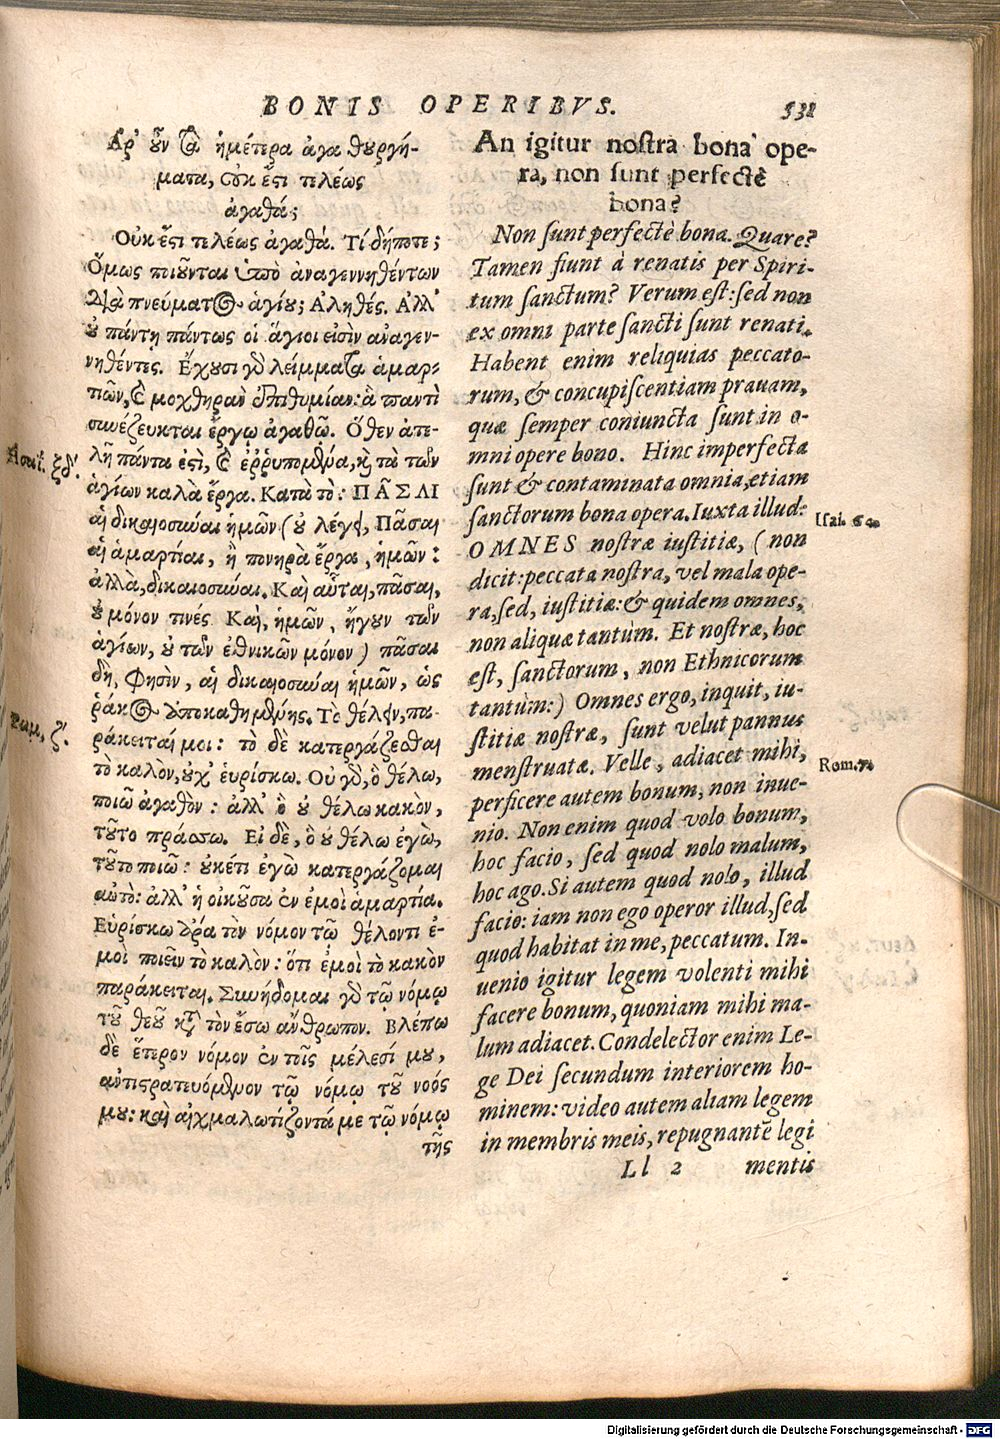 BONIS OPERIBVS. 531
Ἀρ' οὖν τὰ ἡμέτερα ἀγαθουργή-
ματα, οὐκ ἔστι τελέως
ἀγαθά;
Οὐκ ἔστι τελέως ἀγαθά. Τί δήποτε;
Ὅμως ποιοῦνται ὑπὸ ἀναγεννηθέντων
διὰ πνεύματος ἁγίου; Ἀληθές. Ἀλλ'
οὐ πάντη πάντως οἱ ἅγιοι εἰσὶν ἀναγεν-
νηθέντες. Ἔχουσι γὰρ λείμματα ἁμαρ-
τιῶν, καὶ μοχθηρὰν ἐπιθυμίαν: ἃ παντὶ
συνέζευκται ἔργῳ ἀγαθῷ. Ὅθεν ἀτε-
λῆ πάντα ἐστὶ, καὶ ἐρῥυπομένα, καὶ τὰ τῶν
ἁγίων καλὰ ἔργα. Κατὰ τὸ: ΠΑ͂ΣΑΙ
αἱ δικαιοσύναι ἡμῶν (οὐ λέγει, Πᾶσαι
αἱ ἁμαρτίαι, ἢ πονηρὰ ἔργα, ἡμῶν:
ἀλλὰ, δικαιοσύναι. Καὶ αὗται, πᾶσαι,
οὐ μόνον τινές. Καὶ, ἡμῶν, ἤγουν τῶν
ἁγίων, οὐ τῶν ἐθνικῶν μόνον) πᾶσαι
δὴ, φησὶν, αἱ δικαιοσύναι ἡμῶν, ὡς
ῥάκος ἀποκαθημένης. Τὸ θέλειν, πα-
ράκειταί μοι: τὸ δὲ κατεργάζεσθαι
τὸ καλὸν, οὐχ' εὑρίσκω. Οὐ γὰρ, ὃ θέλω,
ποιῶ ἀγαθὸν: ἀλλ' ὃ οὐ θέλω κακὸν,
τοῦτο πράσσω. Εἰ δὲ, ὃ οὐ θέλω ἐγὼ,
τοῦτο ποιῶ: οὐκέτι ἐγὼ κατεργάζομαι
αὐτὸ: ἀλλ' ἡ οἰκοῦσα ἐν ἐμοὶ ἁμαρτία.
Εὑρίσκω ἄρα τὸν νόμον τῷ θέλοντι ἐ-
μοὶ ποιεῖν τὸ καλὸν: ὅτι ἐμοὶ τὸ κακὸν
παράκειται. Συνήδομαι γὰρ τῷ νόμῳ
τοῦ θεοῦ κατὰ τὸν ἔσω ἄνθρωπον. Βλέπω
δὲ ἕτερον νόμον ἐν τοῖς μέλεσί μου,
ἀντιστρατευόμενον τῷ νόμῳ τοῦ νοός
μου: καὶ αἰχμαλωτίζοντά με τῷ νόμῳ
τῆς
Ἡσαΐ. ξδ'.
Ρωμ. ζ'.
An igitur nostra bona ope-
ra, non sunt perfectè
bona?
Non sunt perfectè bona. Quare?
Tamen fiunt à renatis per Spiri-
tum sanctum? Verum est: sed non
ex omni parte sancti sunt renati.
Habent enim reliquias peccato-
rum, & concupiscentiam prauam,
quæ semper coniuncta sunt in o-
mni opere bono. Hinc imperfecta
sunt & contaminata omnia, etiam
sanctorum bona opera. Iuxta illud:
OMNES nostræ iustitiæ, (non
dicit: peccata nostra, vel mala ope-
ra, sed, iustitiæ: & quidem omnes,
non aliquæ tantùm. Et nostræ, hoc
est, sanctorum, non Ethnicorum
tantùm:) Omnes ergo, inquit, iu-
stitiæ nostræ, sunt velut pannus
menstruatæ. Velle, adiacet mihi,
perficere autem bonum, non inue-
nio. Non enim quod volo bonum,
hoc facio, sed quod nolo malum,
hoc ago. Si autem quod nolo, illud
facio: iam non ego operor illud, sed
quod habitat in me, peccatum. In-
uenio igitur legem volenti mihi
facere bonum, quoniam mihi ma-
lum adiacet. Condelector enim Le-
ge Dei secundum interiorem ho-
minem: video autem aliam legem
in membris meis, repugnantē legi
Ll 2 mentis
Isai. 64.
Rom. 7.
Digitalisierung gefördert durch die Deutsche Forschungsgemeinschaft - DFG